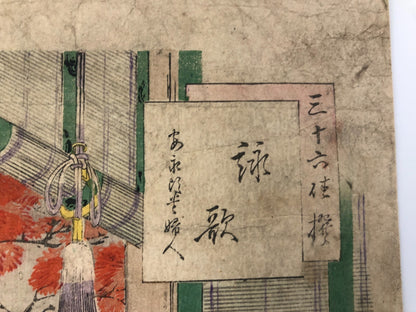 三十六佳撰
詠歌
安永頃貴婦人